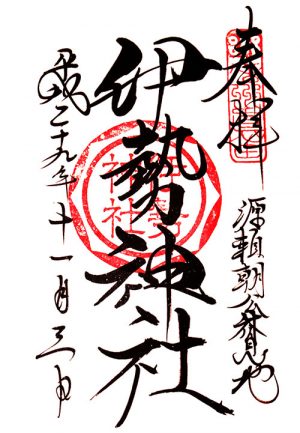 奉拝
源頼朝公
伊勢神社
平成二十九年十一月三日
伊勢
神社